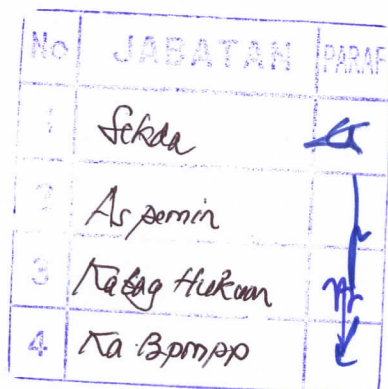 No JABATAN PARAF
1 Sekda
2 As pemin
3 Kabag Hukum
4 Ka. Bpmpp